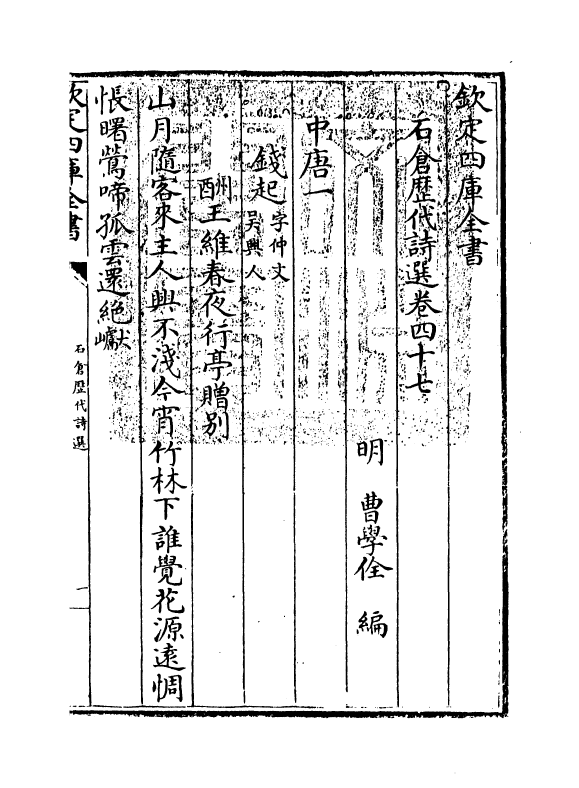 欽定四庫全書
石倉歷代詩選卷四十七
明 曹學佺 編
中唐一
錢起字仲文吳興人
酬王維春夜竹亭贈別
山月隨客來主人興不淺今宵竹林下誰覺花源遠惆
悵曙鶯啼孤雲還絕巘
欽定四庫全書
石倉歷代詩選
一